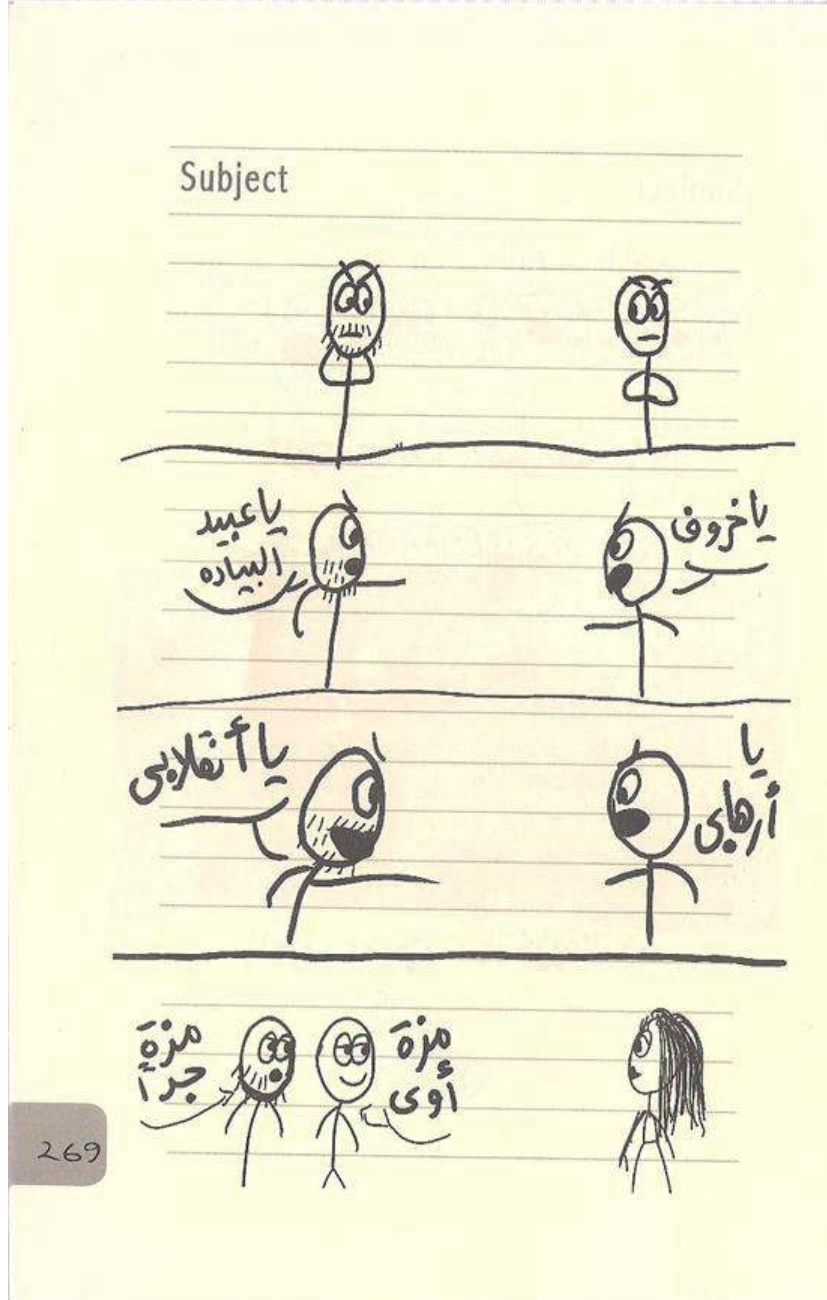 Subject
يا خروف
يا عبيد
البياده
يا
أرهابى
يا أنقلابى
مزة
أوى
مزة
جداً
269